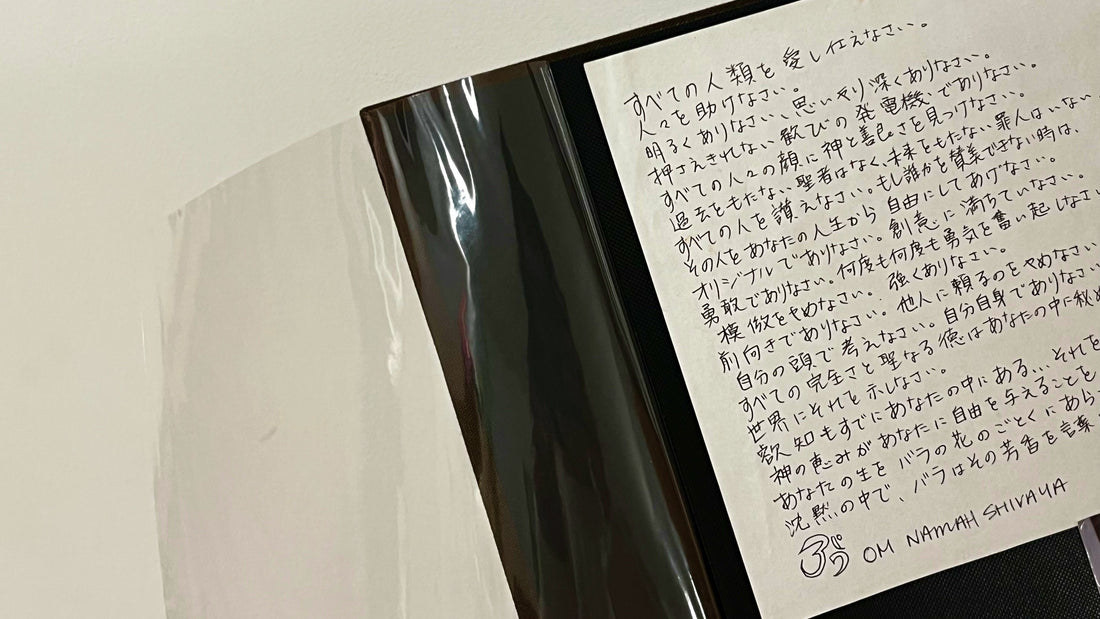 すべての人類を愛し仕えなさい。
人々を助けなさい。
明るくありなさい、思いやり深くありなさい。
押さえきれない歓びの発電機でありなさい。
すべての人々の顔に神と善良さを見つけなさい。
過去をもたない聖者はなく、未来をもたない罪人はいない
すべての人を讃えなさい。もし誰かを賛美できない時は、
その人をあなたの人生から自由にしてあげなさい。
オリジナルでありなさい。創意に満ちていなさい。
勇敢でありなさい。何度も何度も勇気を奮い起しなさい
模倣をやめなさい。強くありなさい。
前向きでありなさい。他人に頼るのをやめなさい
自分の頭で考えなさい。自分自身でありなさい
すべての完全さと聖なる徳はあなたの中に秘め
世界にそれを示しなさい。
叡知もすでにあなたの中にある...それを
神の恵みがあなたに自由を与えることを
あなたの生をバラの花のごとくにあら
沈黙の中で、バラはその芳香を言葉
OM NAMAH SHIVAYA